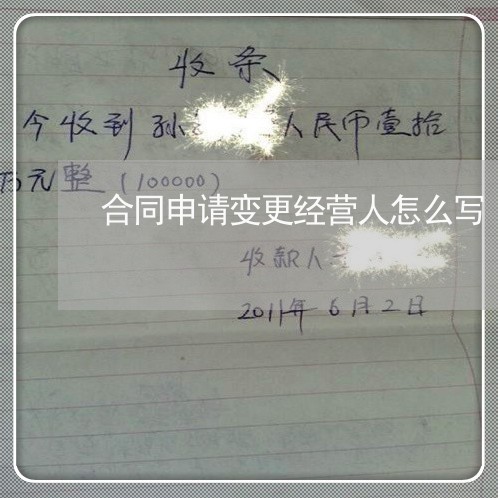 收条
今收到孙 人民币壹拾
万元整（100000）
合同申请变更经营人怎么写
收款人
2011年6月2日